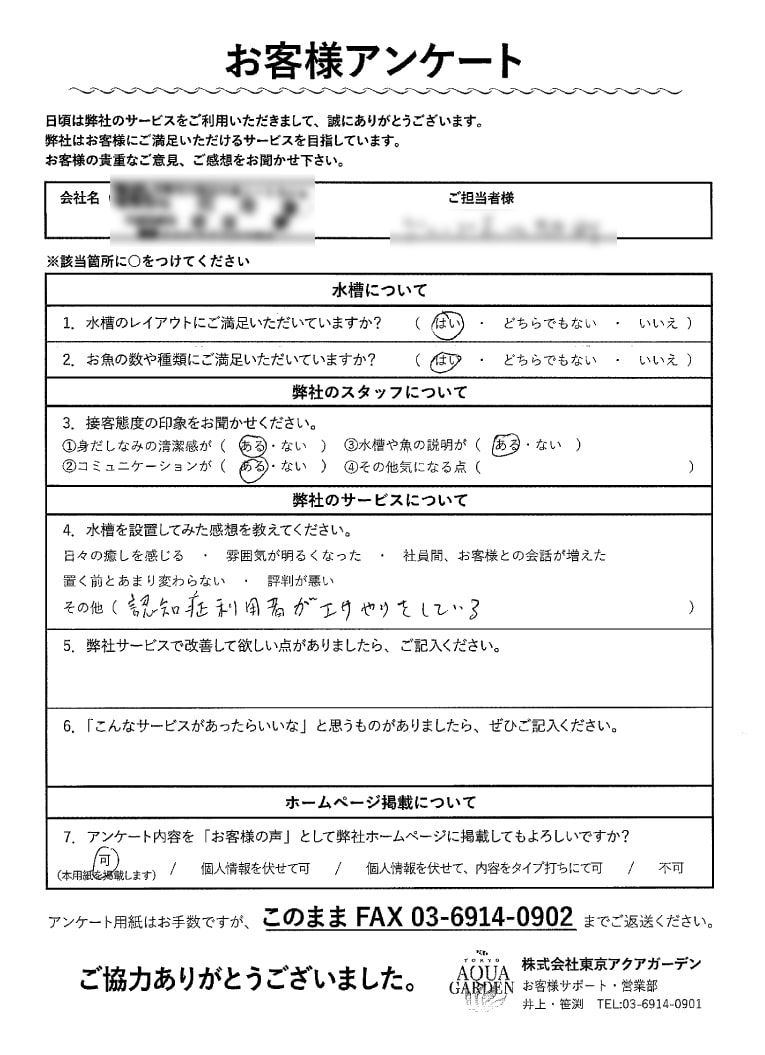 お客様アンケート
日頃は弊社のサービスをご利用いただきまして、誠にありがとうございます。
弊社はお客様にご満足いただけるサービスを目指しています。
お客様の貴重なご意見、ご感想をお聞かせ下さい。
会社名 ご担当者様
※該当箇所に○をつけてください
水槽について
1. 水槽のレイアウトにご満足いただいていますか? ( はい ・ どちらでもない ・ いいえ )
2. お魚の数や種類にご満足いただいていますか? ( はい ・ どちらでもない ・ いいえ )
弊社のスタッフについて
3. 接客態度の印象をお聞かせください。
①身だしなみの清潔感が ( ある・ない ) ③水槽や魚の説明が ( ある・ない )
②コミュニケーションが ( ある・ない ) ④その他気になる点 ( )
弊社のサービスについて
4. 水槽を設置してみた感想を教えてください。
日々の癒しを感じる ・ 雰囲気が明るくなった ・ 社員間、お客様との会話が増えた
置く前とあまり変わらない ・ 評判が悪い
その他 ( 認知症利用者がエサやりをしている )
5. 弊社サービスで改善して欲しい点がありましたら、ご記入ください。
6. 「こんなサービスがあったらいいな」と思うものがありましたら、ぜひご記入ください。
ホームページ掲載について
7. アンケート内容を「お客様の声」として弊社ホームページに掲載してもよろしいですか?
可 / 個人情報を伏せて可 / 個人情報を伏せて、内容をタイプ打ちにて可 / 不可
(本用紙を掲載します)
アンケート用紙はお手数ですが、このまま FAX 03-6914-0902 までご返送ください。
ご協力ありがとうございました。
TOKYO
AQUA
GARDEN
株式会社東京アクアガーデン
お客様サポート・営業部
井上・笹渕 TEL:03-6914-0901